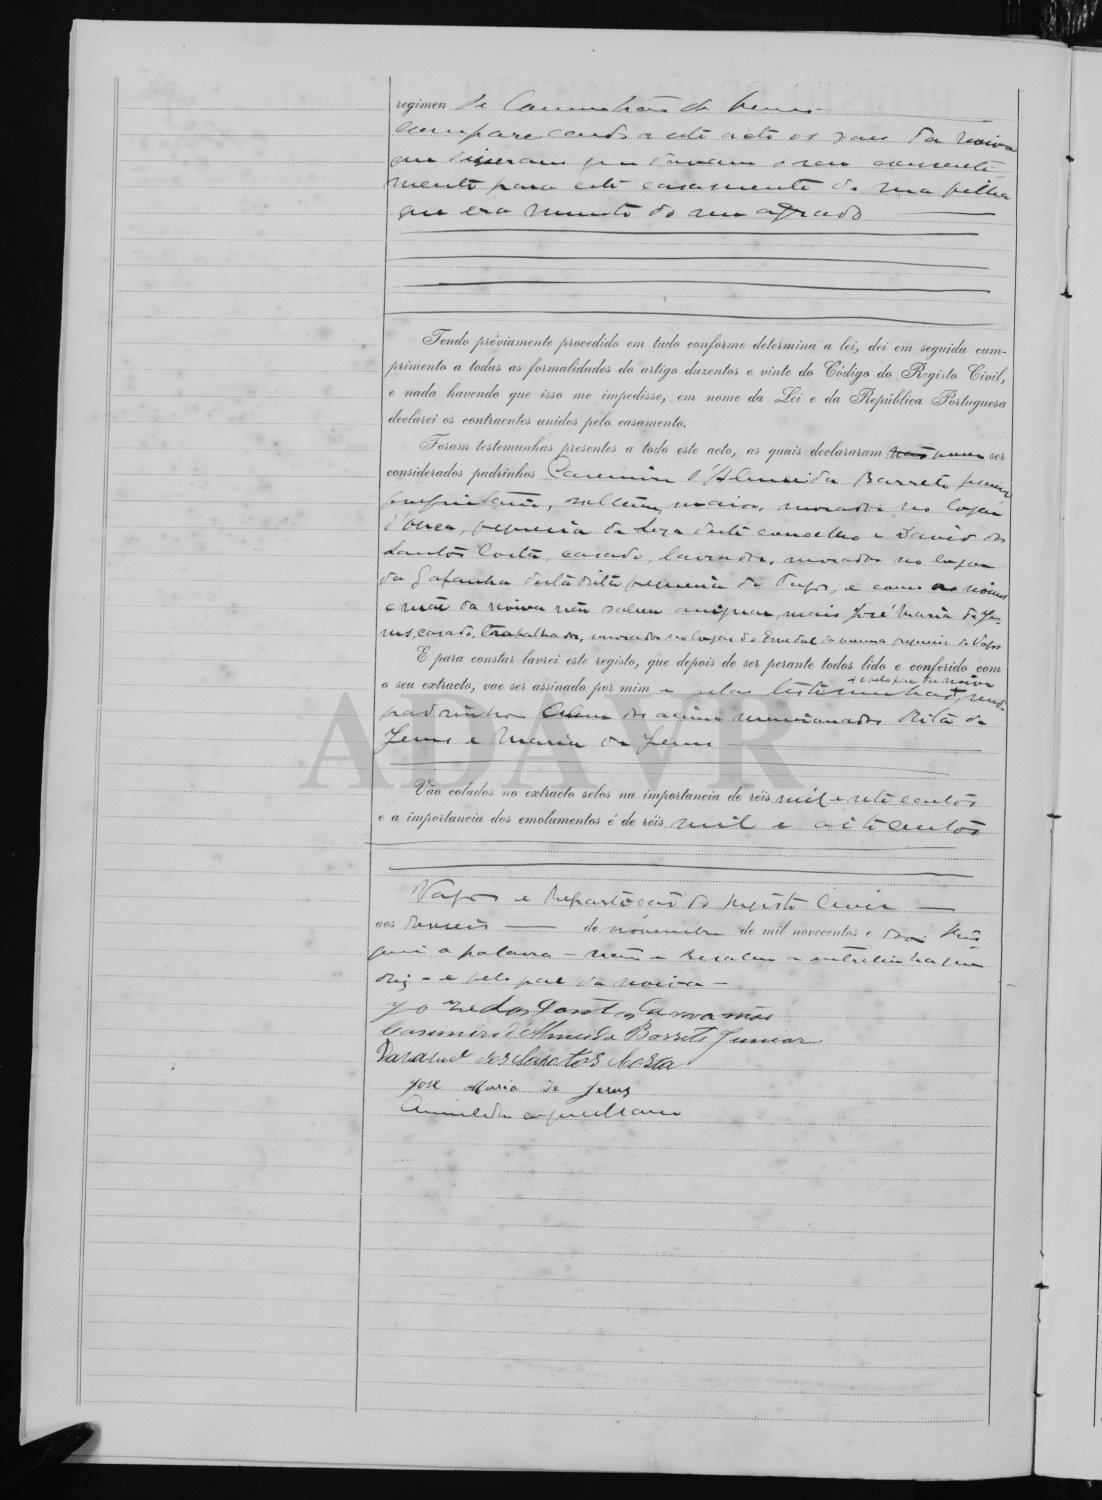 regimen de Communhão de bens
comparecendo a este acto os paes da noiva
que disseram que davam o seu consenti-
mento para este casamento de sua filha
que era muito do seu agrado
Tendo préviamente procedido em tudo conforme determina a lei, dei em seguida cum-
primento a todas as formalidades do artigo duzentos e vinte do Código do Registo Civil,
e nada havendo que isso me impedisse, em nome da Lei e da República Portuguesa
declarei os contraentes unidos pelo casamento.
Foram testemunhas presentes a todo este acto, as quais declararam não ser
considerados padrinhos Casimiro d'Almeida Barreto junior
proprietario, solteiro, maior, morador no logar
freguesia de Soza deste concelho e David dos
Santos Costa, casado, lavrador, morador no logar
da Gafanha desta dita freguesia de Vagos, e como os noivos
e mãe da noiva não sabem assignar, mais José Maria de Je-
sus, casado, trabalhador, morador no logar do da mesma freguesia de Vagos
E para constar lavrei este registo, que depois de ser perante todos lido e conferido com
e pelo pae da noiva
o seu extracto, vae ser assinado por mim e pelas testemunhas, sendo
padrinhos dos acima mencionados Rita de
Jesus e Maria de Jesus
ADAVR
Vão colados no extracto selos na importancia de réis mil e sete centos
e a importancia dos emolumentos é de réis mil e oito centos
Vagos e Repartição do Registo Civil
aos dezeseis de novembro de mil novecentos e dois Ris
quei a palavra - não - Resalvo a entrelinha que
diz - e pelo pae da noiva -
Jozé dos Santos
Casimiro d'Almeida Barreto Junior
dos Santos Costa
José Maria de Jesus